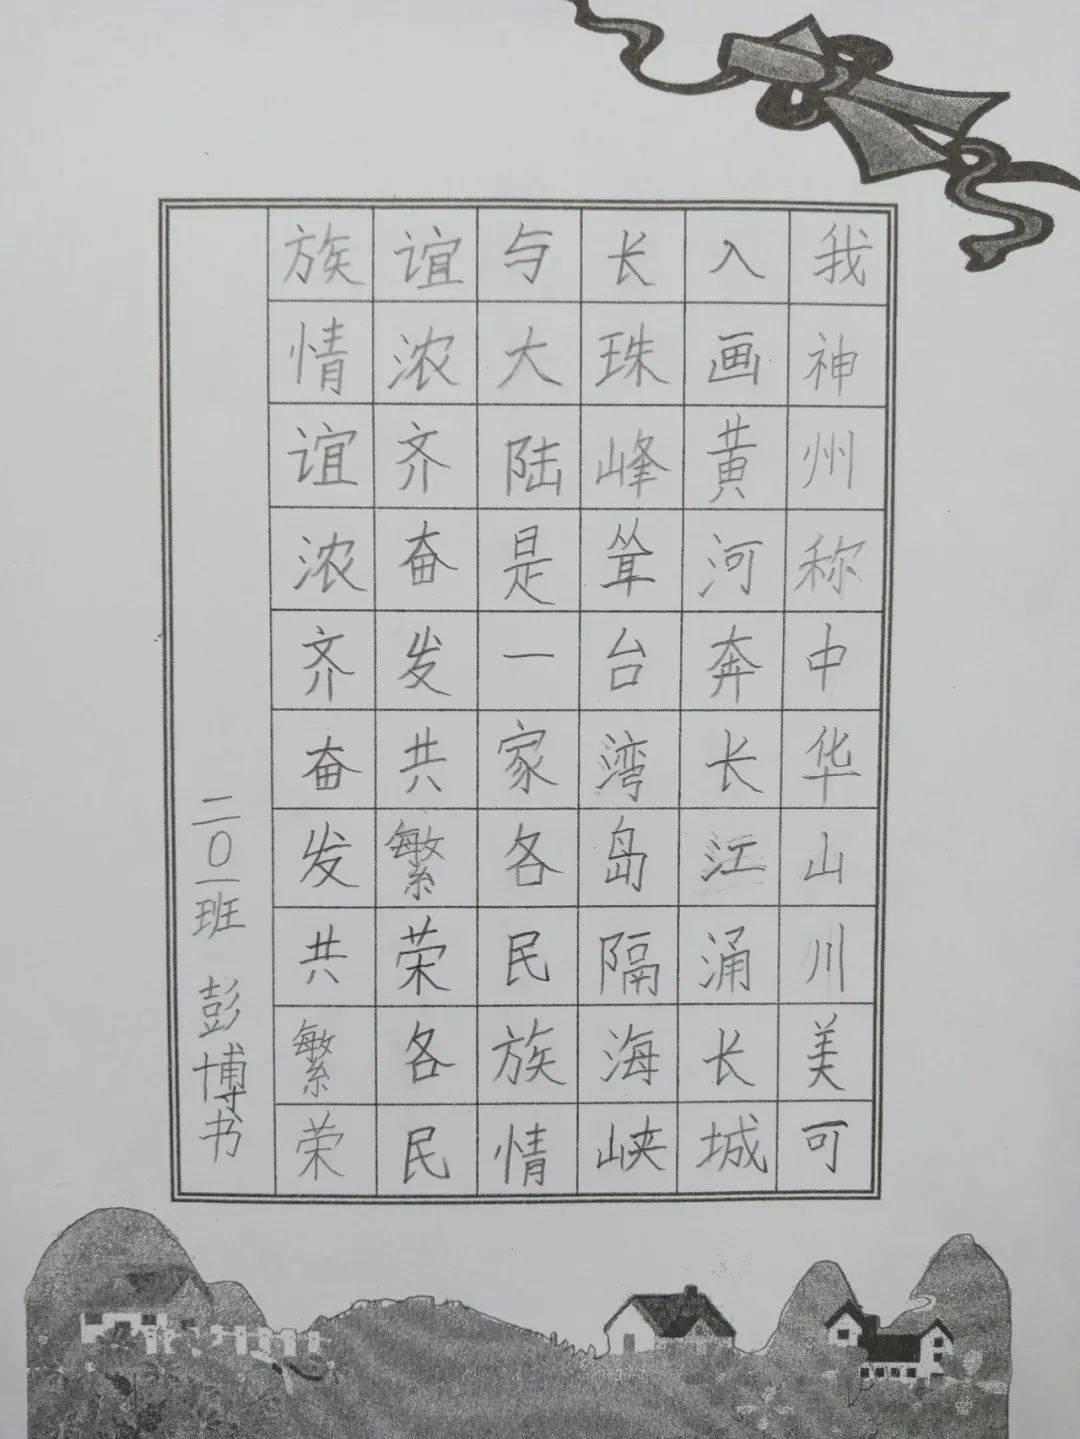 我神州称中华山川美可
入画黄河奔长江涌长城
长珠峰耸台湾岛隔海峡
与大陆是一家各民族情
谊浓齐奋发共繁荣各民
族情谊浓齐奋发共繁荣
二〇一班 彭博书